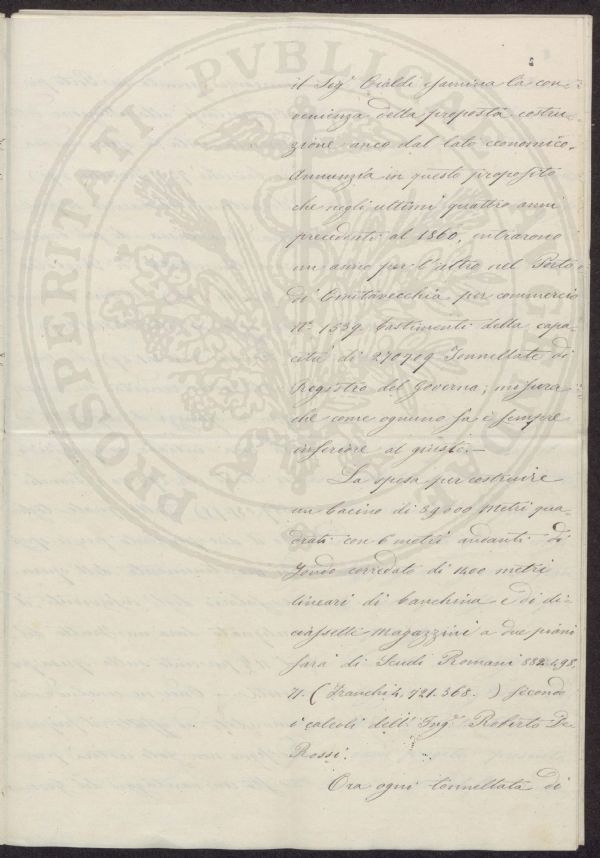 il Sig.r Cialdi esamina la con-
venienza della proposta costru-
zione anco dal lato economico.
Annunzia in questo proposito
che negli ultimi quattro anni
precedenti al 1860, entrarono
un anno per l'altro nel Porto
di Civitavecchia per commercio
N.o 1539 bastimenti della capa-
cità di 270709 Tonnellate di
Registro del Governo; misura
che come ognuno sa è sempre
inferiore al giusto.—
La spesa per costruire
un bacino di 39000 metri qua-
drati con 6 metri andanti di
fondo corredato di 1400 metri
lineari di banchina e di di-
ciassette magazzini a due piani
sarà di Scudi Romani 882.498,
71. (Franchi 4,721.368.) secondo
i calcoli dell'Ing.r Roberto De
Rossi.
Ora ogni tonnellata di
PROSPERITATI PVBLICAE